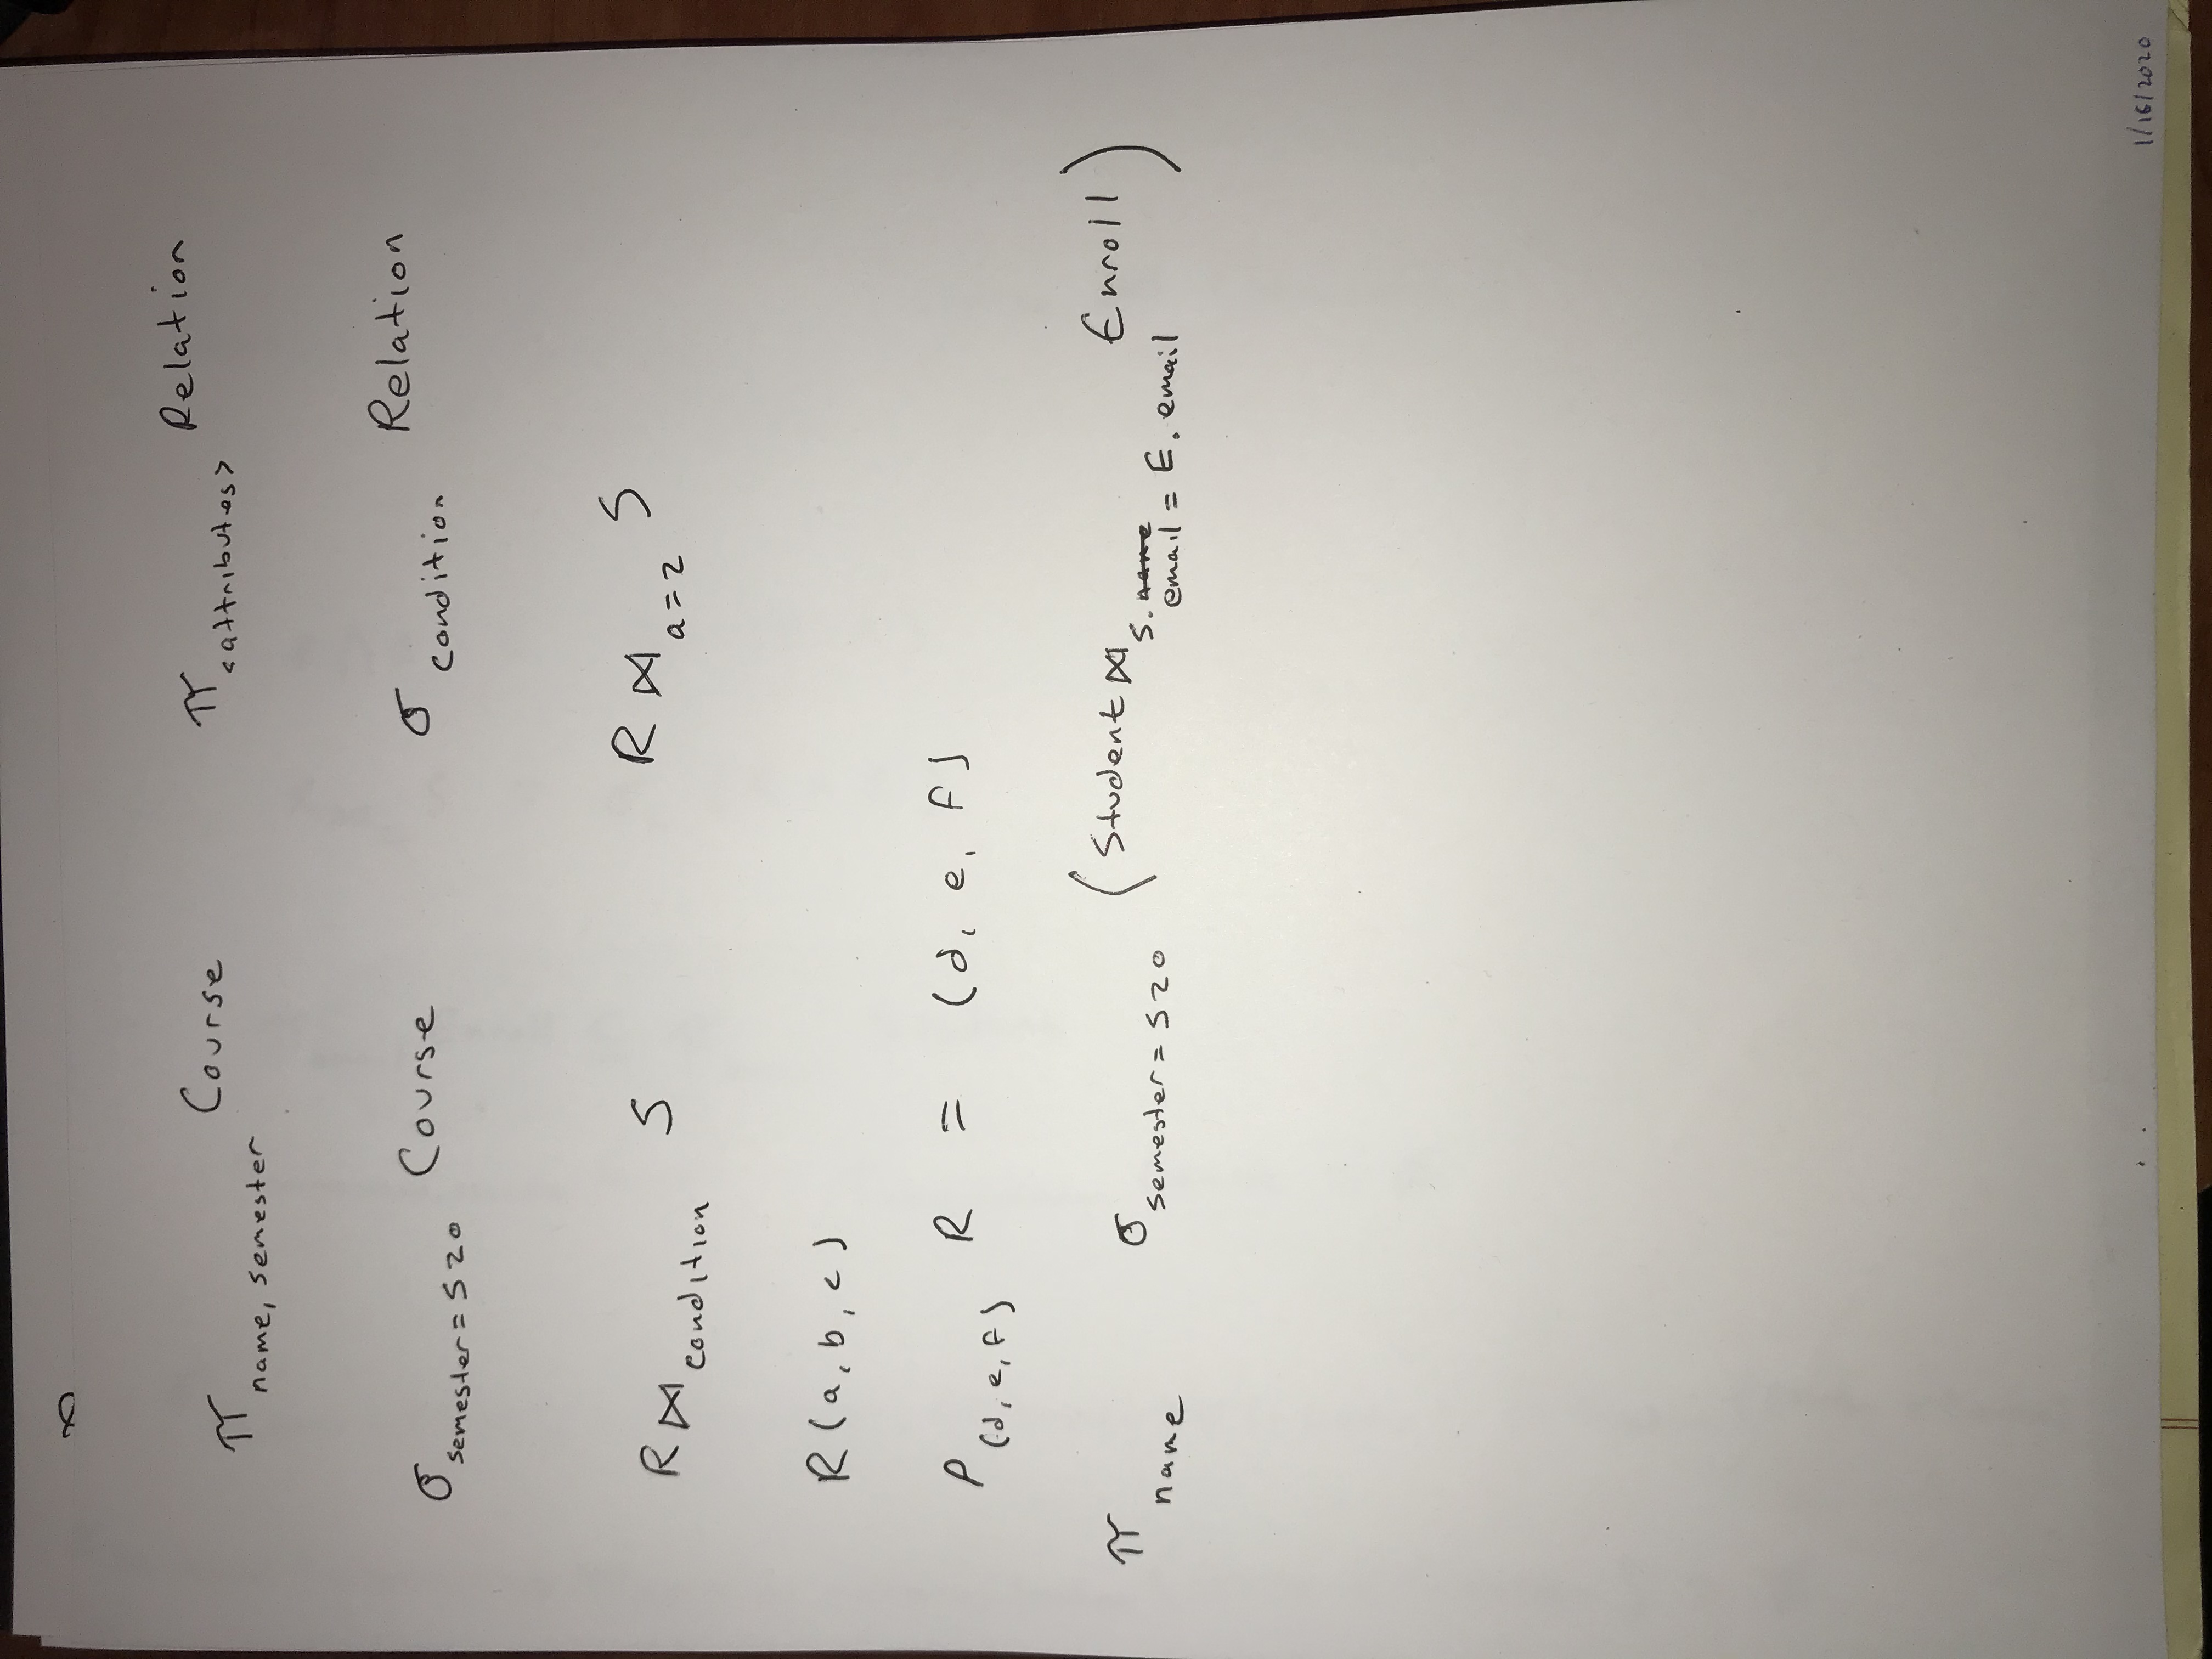 π name, semester Course π <attributes> Relation
σ semester = S20 Course σ condition Relation
R ⋈ condition S R ⋈ a=2 S
R(a, b, c)
ρ (d, e, f) R = (d, e, f)
π name σ semester = S20 (Student ⋈ S. name email = E. email Enroll)
1/16/2020